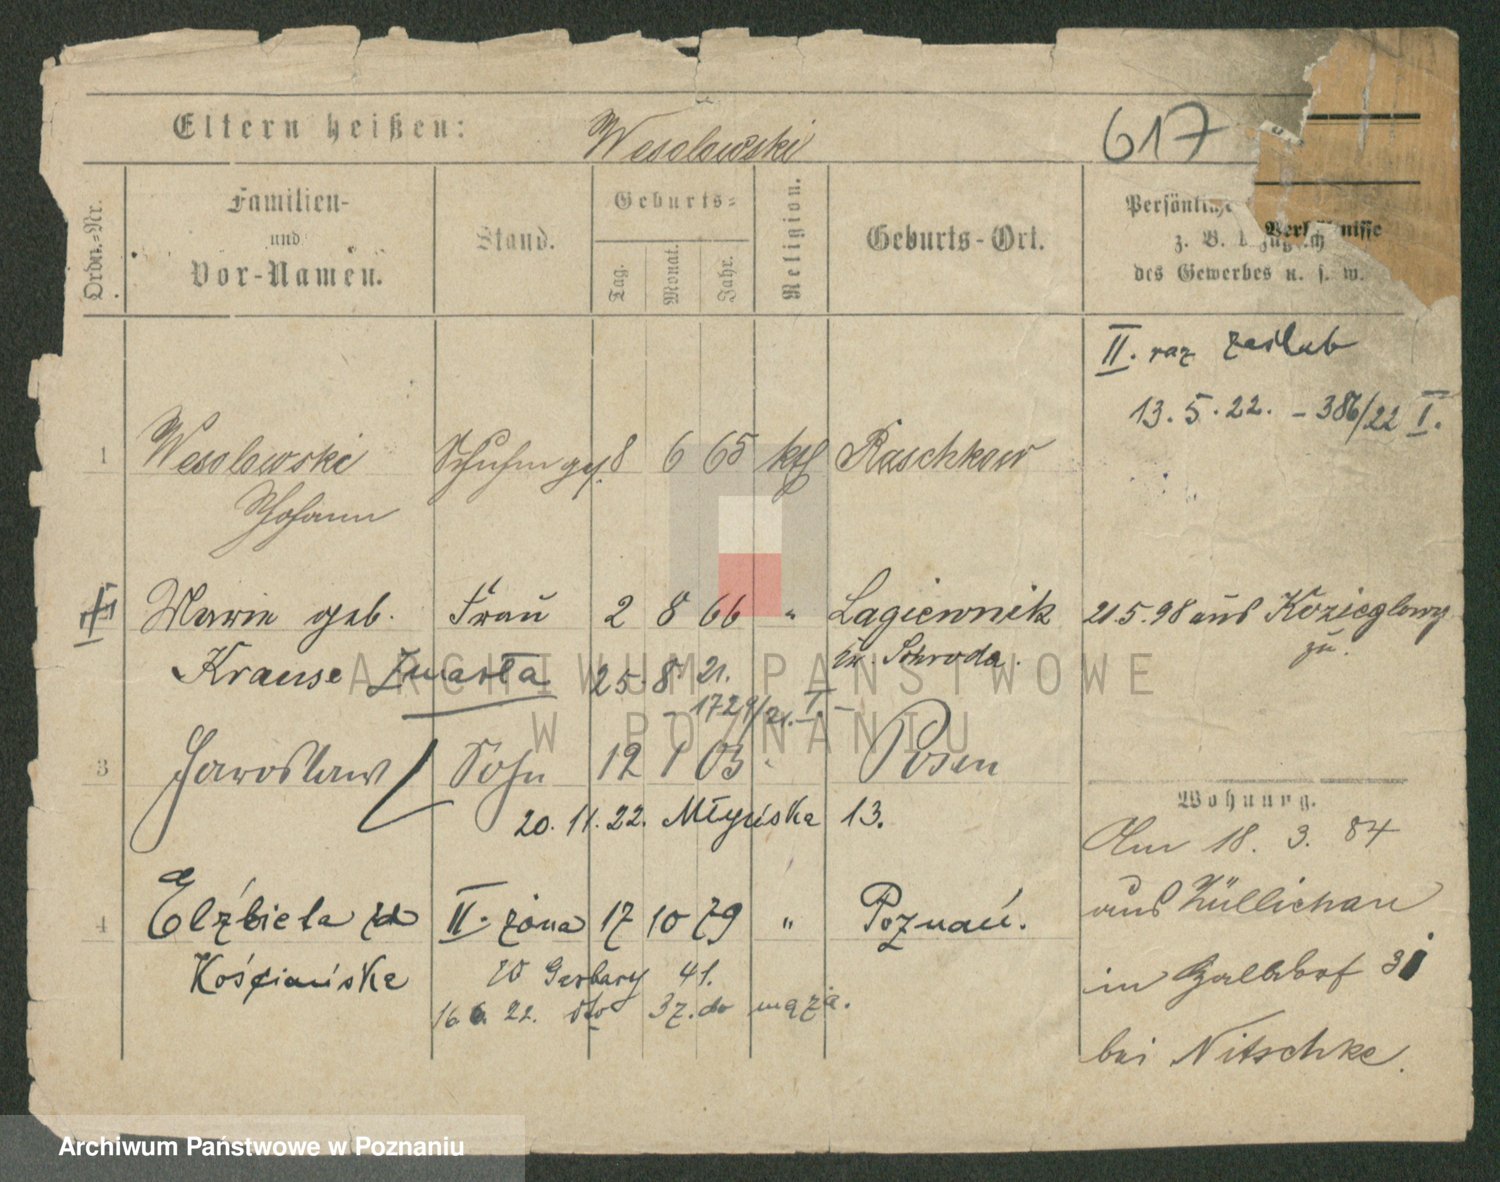 Eltern heißen: Wesolowski 617
Ordn.-Nr.
Familien-
und
Vor-Namen.
Stand.
Geburts-
Tag. Monat. Jahr.
Religion.
Geburts-Ort.
Persönliche Verhältnisse
z. B. bezüglich
des Gewerbes u. s. w.
II. raz zaślub
13. 5. 22. – 386/22 I.
1 Wesolowski Schuhm ges. 8 6 65 kth Raschkow
Johann
Marie geb. Frau 2 8 66 " Lagiewnik 21.5.98 aus Kozieglowy
Kr. Schroda. zu.
Krause Zmarła 25. 8. 21.
– 1729/21. I. –
3 Jaroslaw Sohn 12 1 03 " Posen
20. 11. 22. Młyńska 13.
4 Elżbieta zd II. żona 17 10 79 " Poznań.
Kościańska W Garbary 41.
16 6 22. 37. do męża.
Wohnung.
Am 18. 3. 84
aus Züllichau
in Halbdorf 31
bei Nitschke.
ARCHIWUM PAŃSTWOWE
W POZNANIU
Archiwum Państwowe w Poznaniu